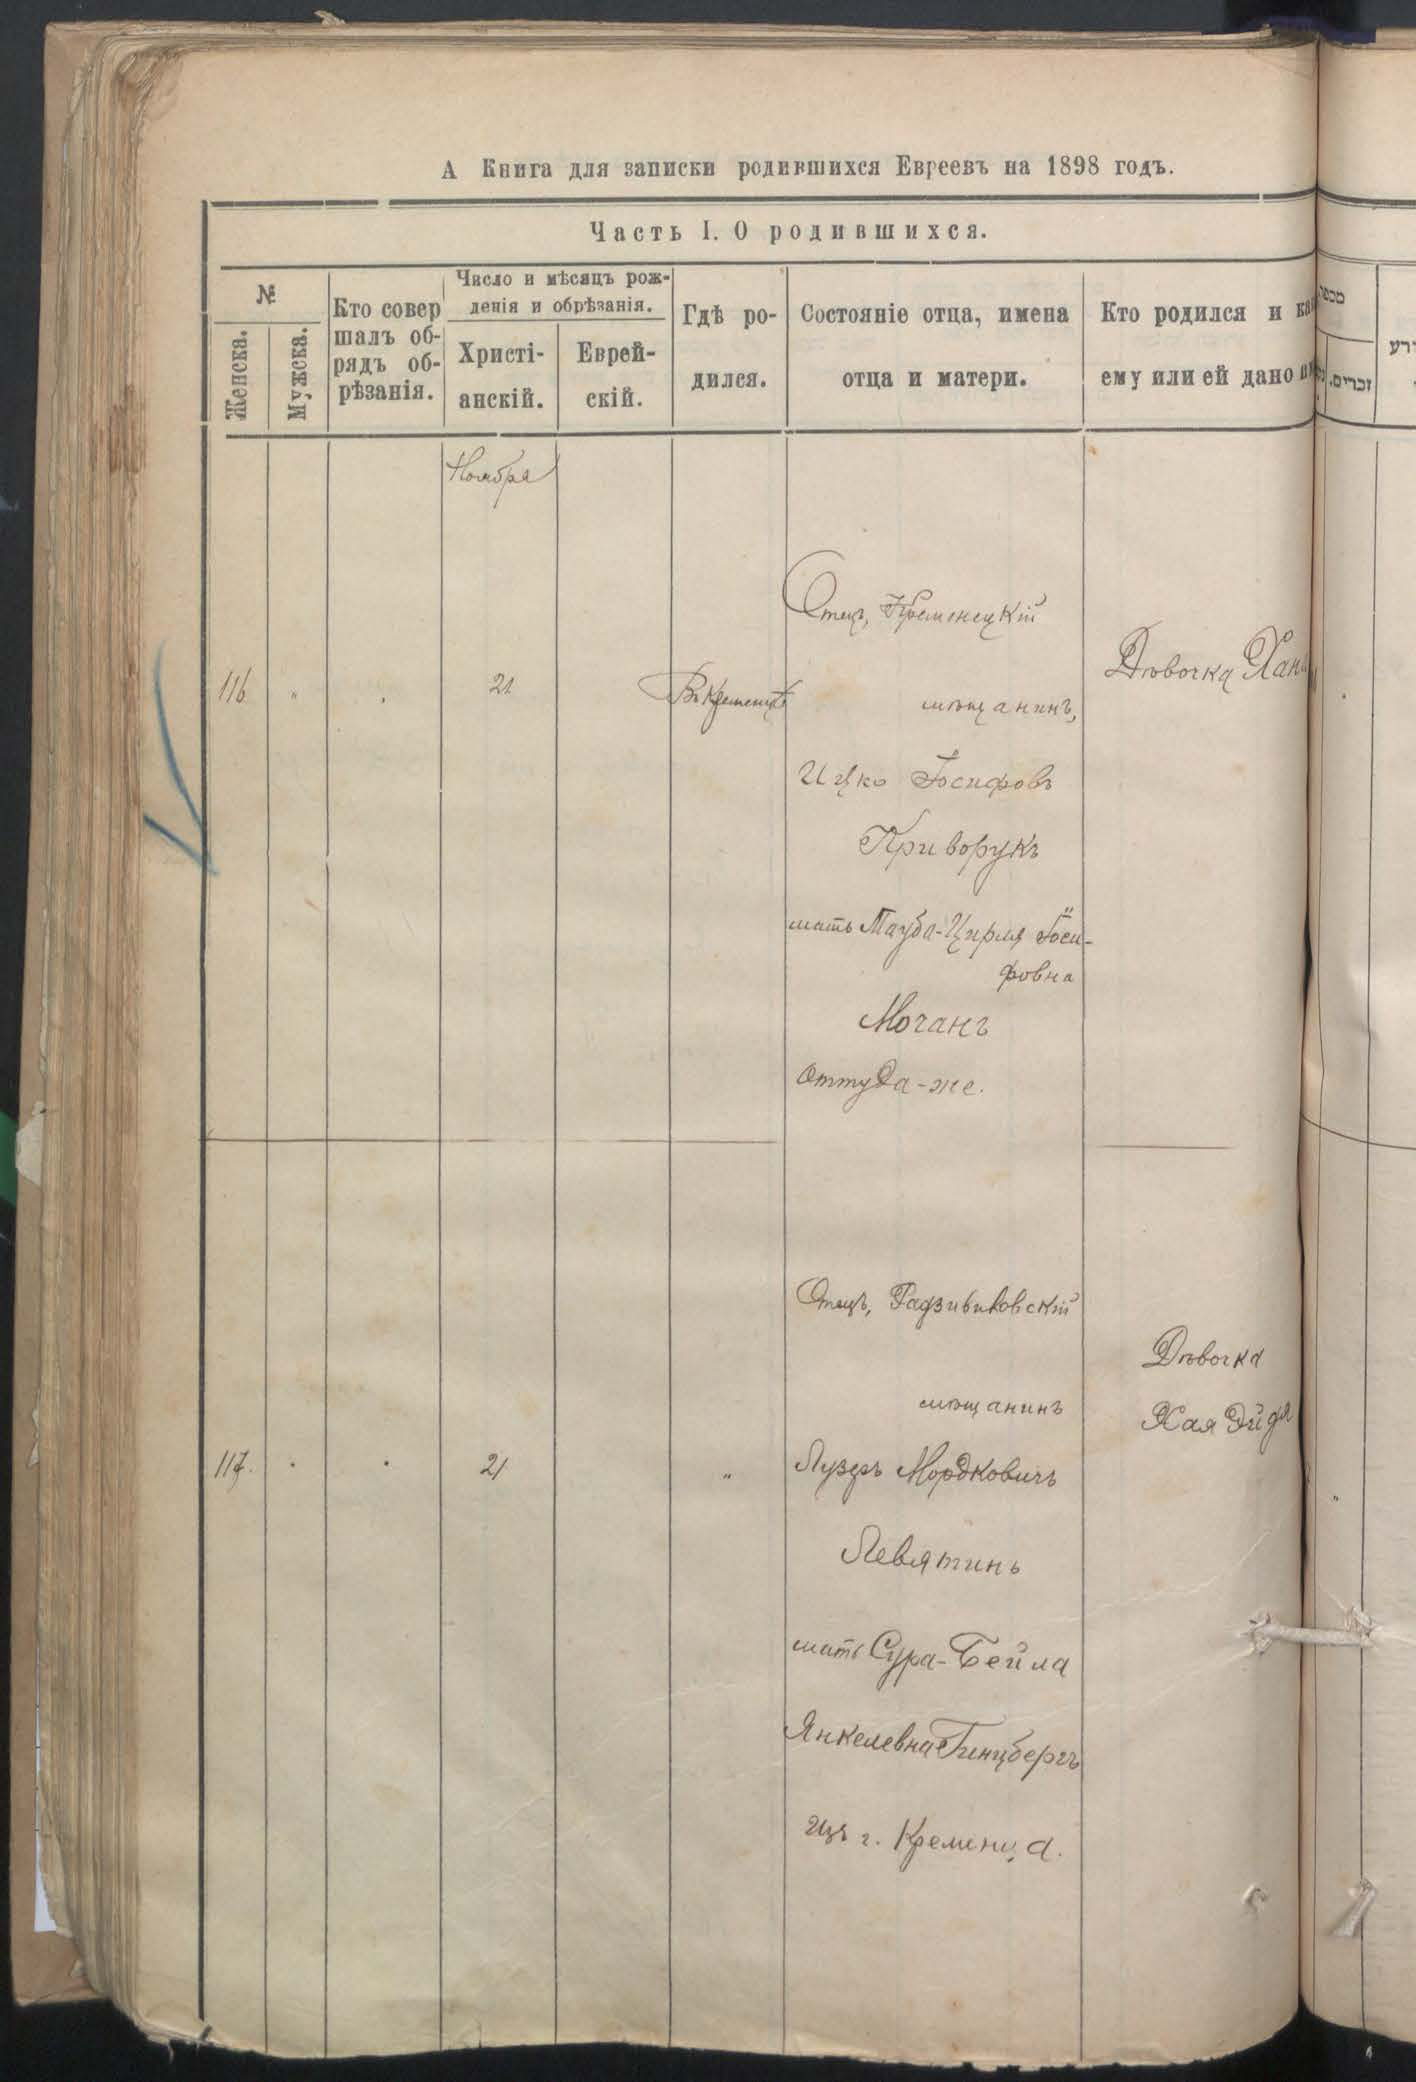 А Книга для записки родившихся Евреевъ на 1898 годъ.
Часть I. О родившихся.
№
Женска.
Мужска.
Кто совер
шалъ об-
рядъ об-
рѣзанія.
Число и мѣсяцъ рож-
денія и обрѣзанія.
Христі-
анскій.
Еврей-
скій.
Гдѣ ро-
дился.
Состояніе отца, имена
отца и матери.
Кто родился и
ему или ей дано
זכרים.
Ноября
116
21
Въ Кременцѣ
Отецъ, Кременецкій
мѣщанинъ,
Ицко Іосифовъ
Криворукъ
мать Тауба-Цирля Іоси-
фовна
Мочанъ
оттуда-же.
Дѣвочка
117.
"
"
21
"
Отецъ, Радзивиловскій
мѣщанинъ
Лузеръ Мордковичъ
Левятинъ
мать Сура-Бейла
Янкелевна Гинцбергъ
изъ г. Кременца.
Дѣвочка
Хая Эйдя